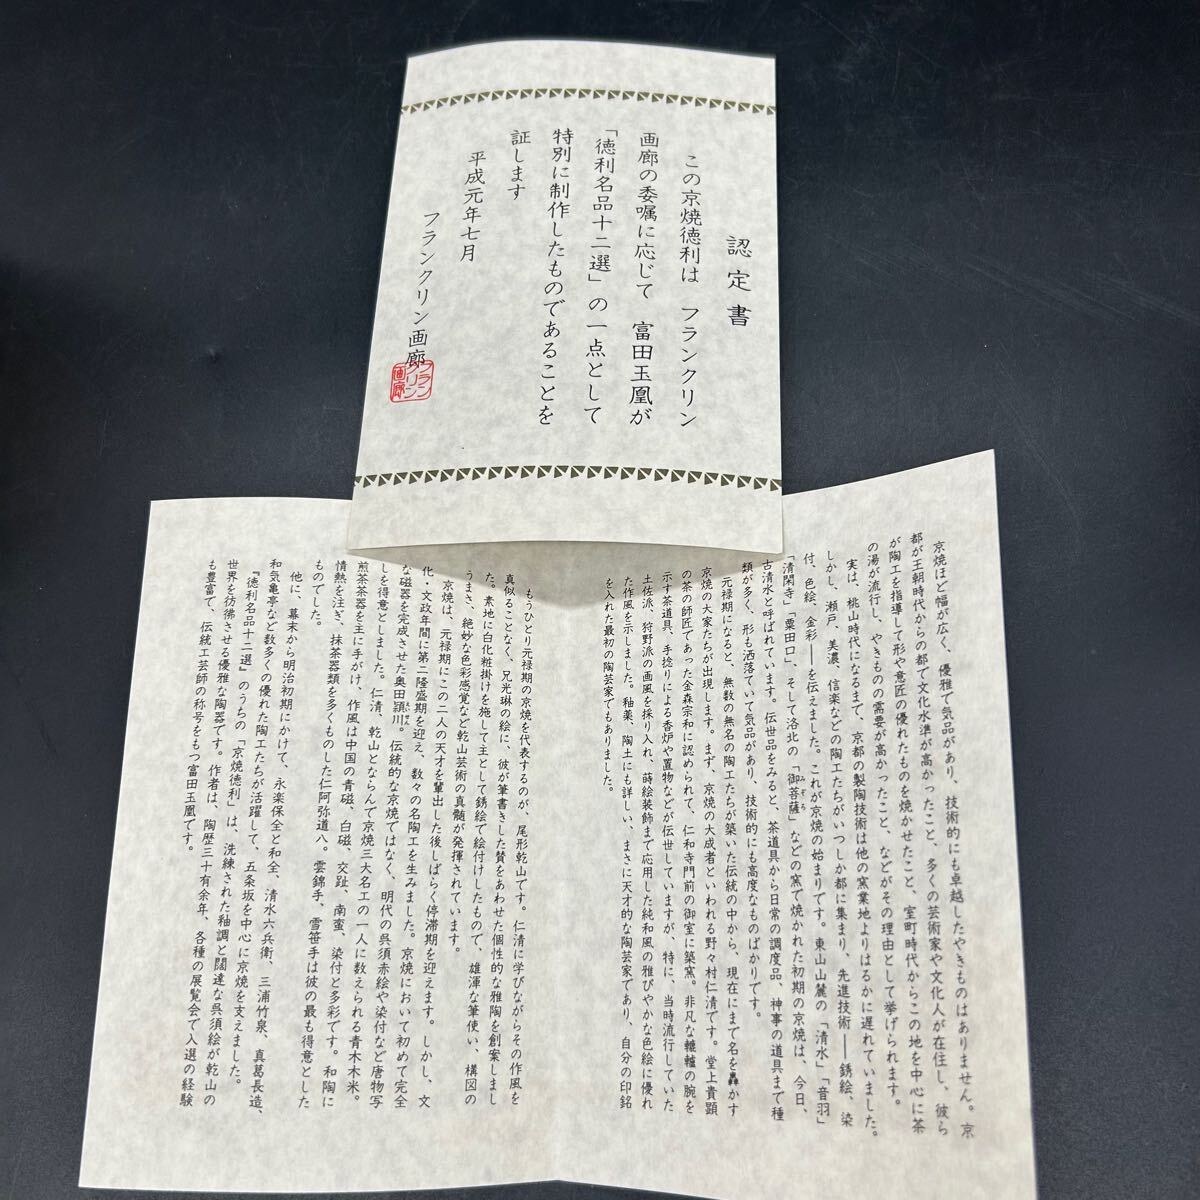 認定書
この京焼徳利は フランクリン
画廊の委嘱に応じて 富田玉凰が
「徳利名品十二選」の一点として
特別に制作したものであることを
証します
平成元年七月
フランクリン画廊
フランクリン画廊
京焼ほど幅が広く、優雅で気品があり、技術的にも卓越したやきものはありません。京
都が王朝時代からの都で文化水準が高かったこと、多くの芸術家や文化人が在住し、彼ら
が陶工を指導して形や意匠の優れたものを焼かせたこと、室町時代からこの地を中心に茶
の湯が流行し、やきものの需要が高かったこと、などがその理由として挙げられます。
実は、桃山時代になるまで、京都の製陶技術は他の窯業地よりはるかに遅れていました。
しかし、瀬戸、美濃、信楽などの陶工たちがいつしか都に集まり、先進技術――銹絵、染
付、色絵、金彩――を伝えました。これが京焼の始まりです。東山山麓の「清水」「音羽」
「清閑寺」「粟田口」、そして洛北の「御菩薩」などの窯で焼かれた初期の京焼は、今日、
古清水と呼ばれています。伝世品をみると、茶道具から日常の調度品、神事の道具まで種
類が多く、形も洒落ていて気品があり、技術的にも高度なものばかりです。
元禄期になると、無数の無名の陶工たちが築いた伝統の中から、現在にまで名を轟かす
京焼の大家たちが出現します。まず、京焼の大成者といわれる野々村仁清です。堂上貴顕
の茶の師匠であった金森宗和に認められて、仁和寺門前の御室に築窯。非凡な轆轤の腕を
示す茶道具、手捻りによる香炉や置物などが伝世していますが、特に、当時流行していた
土佐派、狩野派の画風を採り入れ、蒔絵装飾まで応用した純和風の雅びやかな色絵に優れ
た作風を示しました。釉薬、陶土にも詳しい、まさに天才的な陶芸家であり、自分の印銘
を入れた最初の陶芸家でもありました。
もうひとり元禄期の京焼を代表するのが、尾形乾山です。仁清に学びながらその作風を
真似ることなく、兄光琳の絵に、彼が筆書きした賛をあわせた個性的な雅陶を創案しまし
た。素地に白化粧掛けを施して主として銹絵で絵付けしたもので、雄渾な筆使い、構図の
うまさ、絶妙な色彩感覚など乾山芸術の真髄が発揮されています。
京焼は、元禄期にこの二人の天才を輩出した後しばらく停滞期を迎えます。しかし、文
化・文政年間に第二隆盛期を迎え、数々の名陶工を生みました。京焼において初めて完全
な磁器を完成させた奥田頴川。伝統的な京焼ではなく、明代の呉須赤絵や染付など唐物写
しを得意としました。仁清、乾山とならんで京焼三大名工の一人に数えられる青木木米。
煎茶茶器を主に手がけ、作風は中国の青磁、白磁、交趾、南蛮、染付と多彩です。和陶に
情熱を注ぎ、抹茶器類を多くものした仁阿弥道八。雲錦手、雪笹手は彼の最も得意とした
ものでした。
他に、幕末から明治初期にかけて、永楽保全と和全、清水六兵衛、三浦竹泉、真葛長造、
和気亀亭など数多くの優れた陶工たちが活躍して、五条坂を中心に京焼を支えました。
『徳利名品十二選』のうちの「京焼徳利」は、洗練された釉調と闊達な呉須絵が乾山の
世界を彷彿させる優雅な陶器です。作者は、陶歴三十有余年、各種の展覧会で入選の経験
も豊富で、伝統工芸師の称号をもつ富田玉凰です。